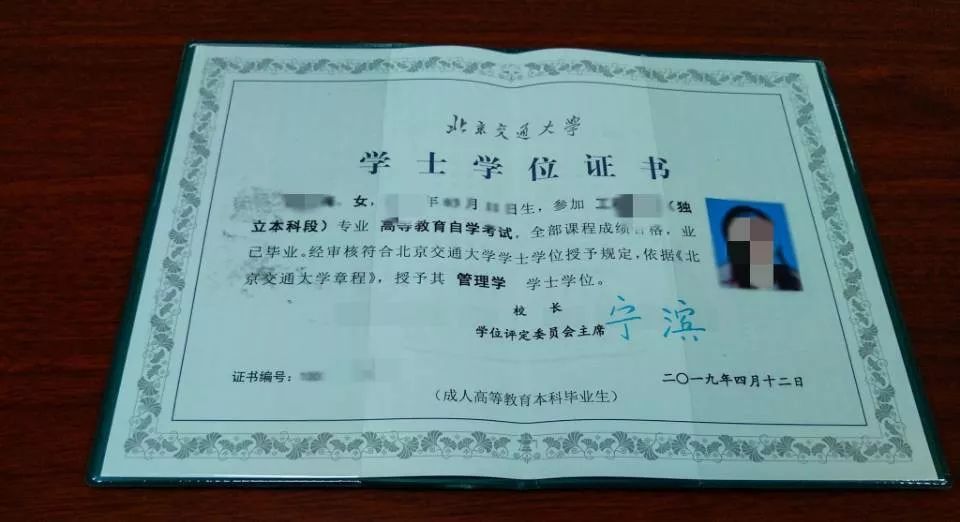 北京交通大学
学士学位证书
女, 年 03月 日生, 参加 工 (独
立本科段) 专业 高等教育自学考试, 全部课程成绩合格, 业
已毕业。经审核符合北京交通大学学士学位授予规定, 依据《北
京交通大学章程》, 授予其 管理学 学士学位。
校 长
学位评定委员会主席 宁滨
证书编号:
二〇一九年四月十二日
(成人高等教育本科毕业生)